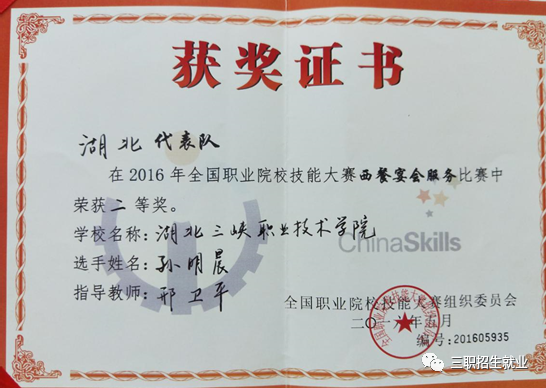 获奖证书
湖北代表队
在2016年全国职业院校技能大赛西餐宴会服务比赛中
荣获二等奖。
学校名称：湖北三峡职业技术学院
ChinaSkills
选手姓名：孙明晨
指导教师：邢卫平
全国职业院校技能大赛组织委员会
二〇一六年五月
编号：201605935
三职招生就业